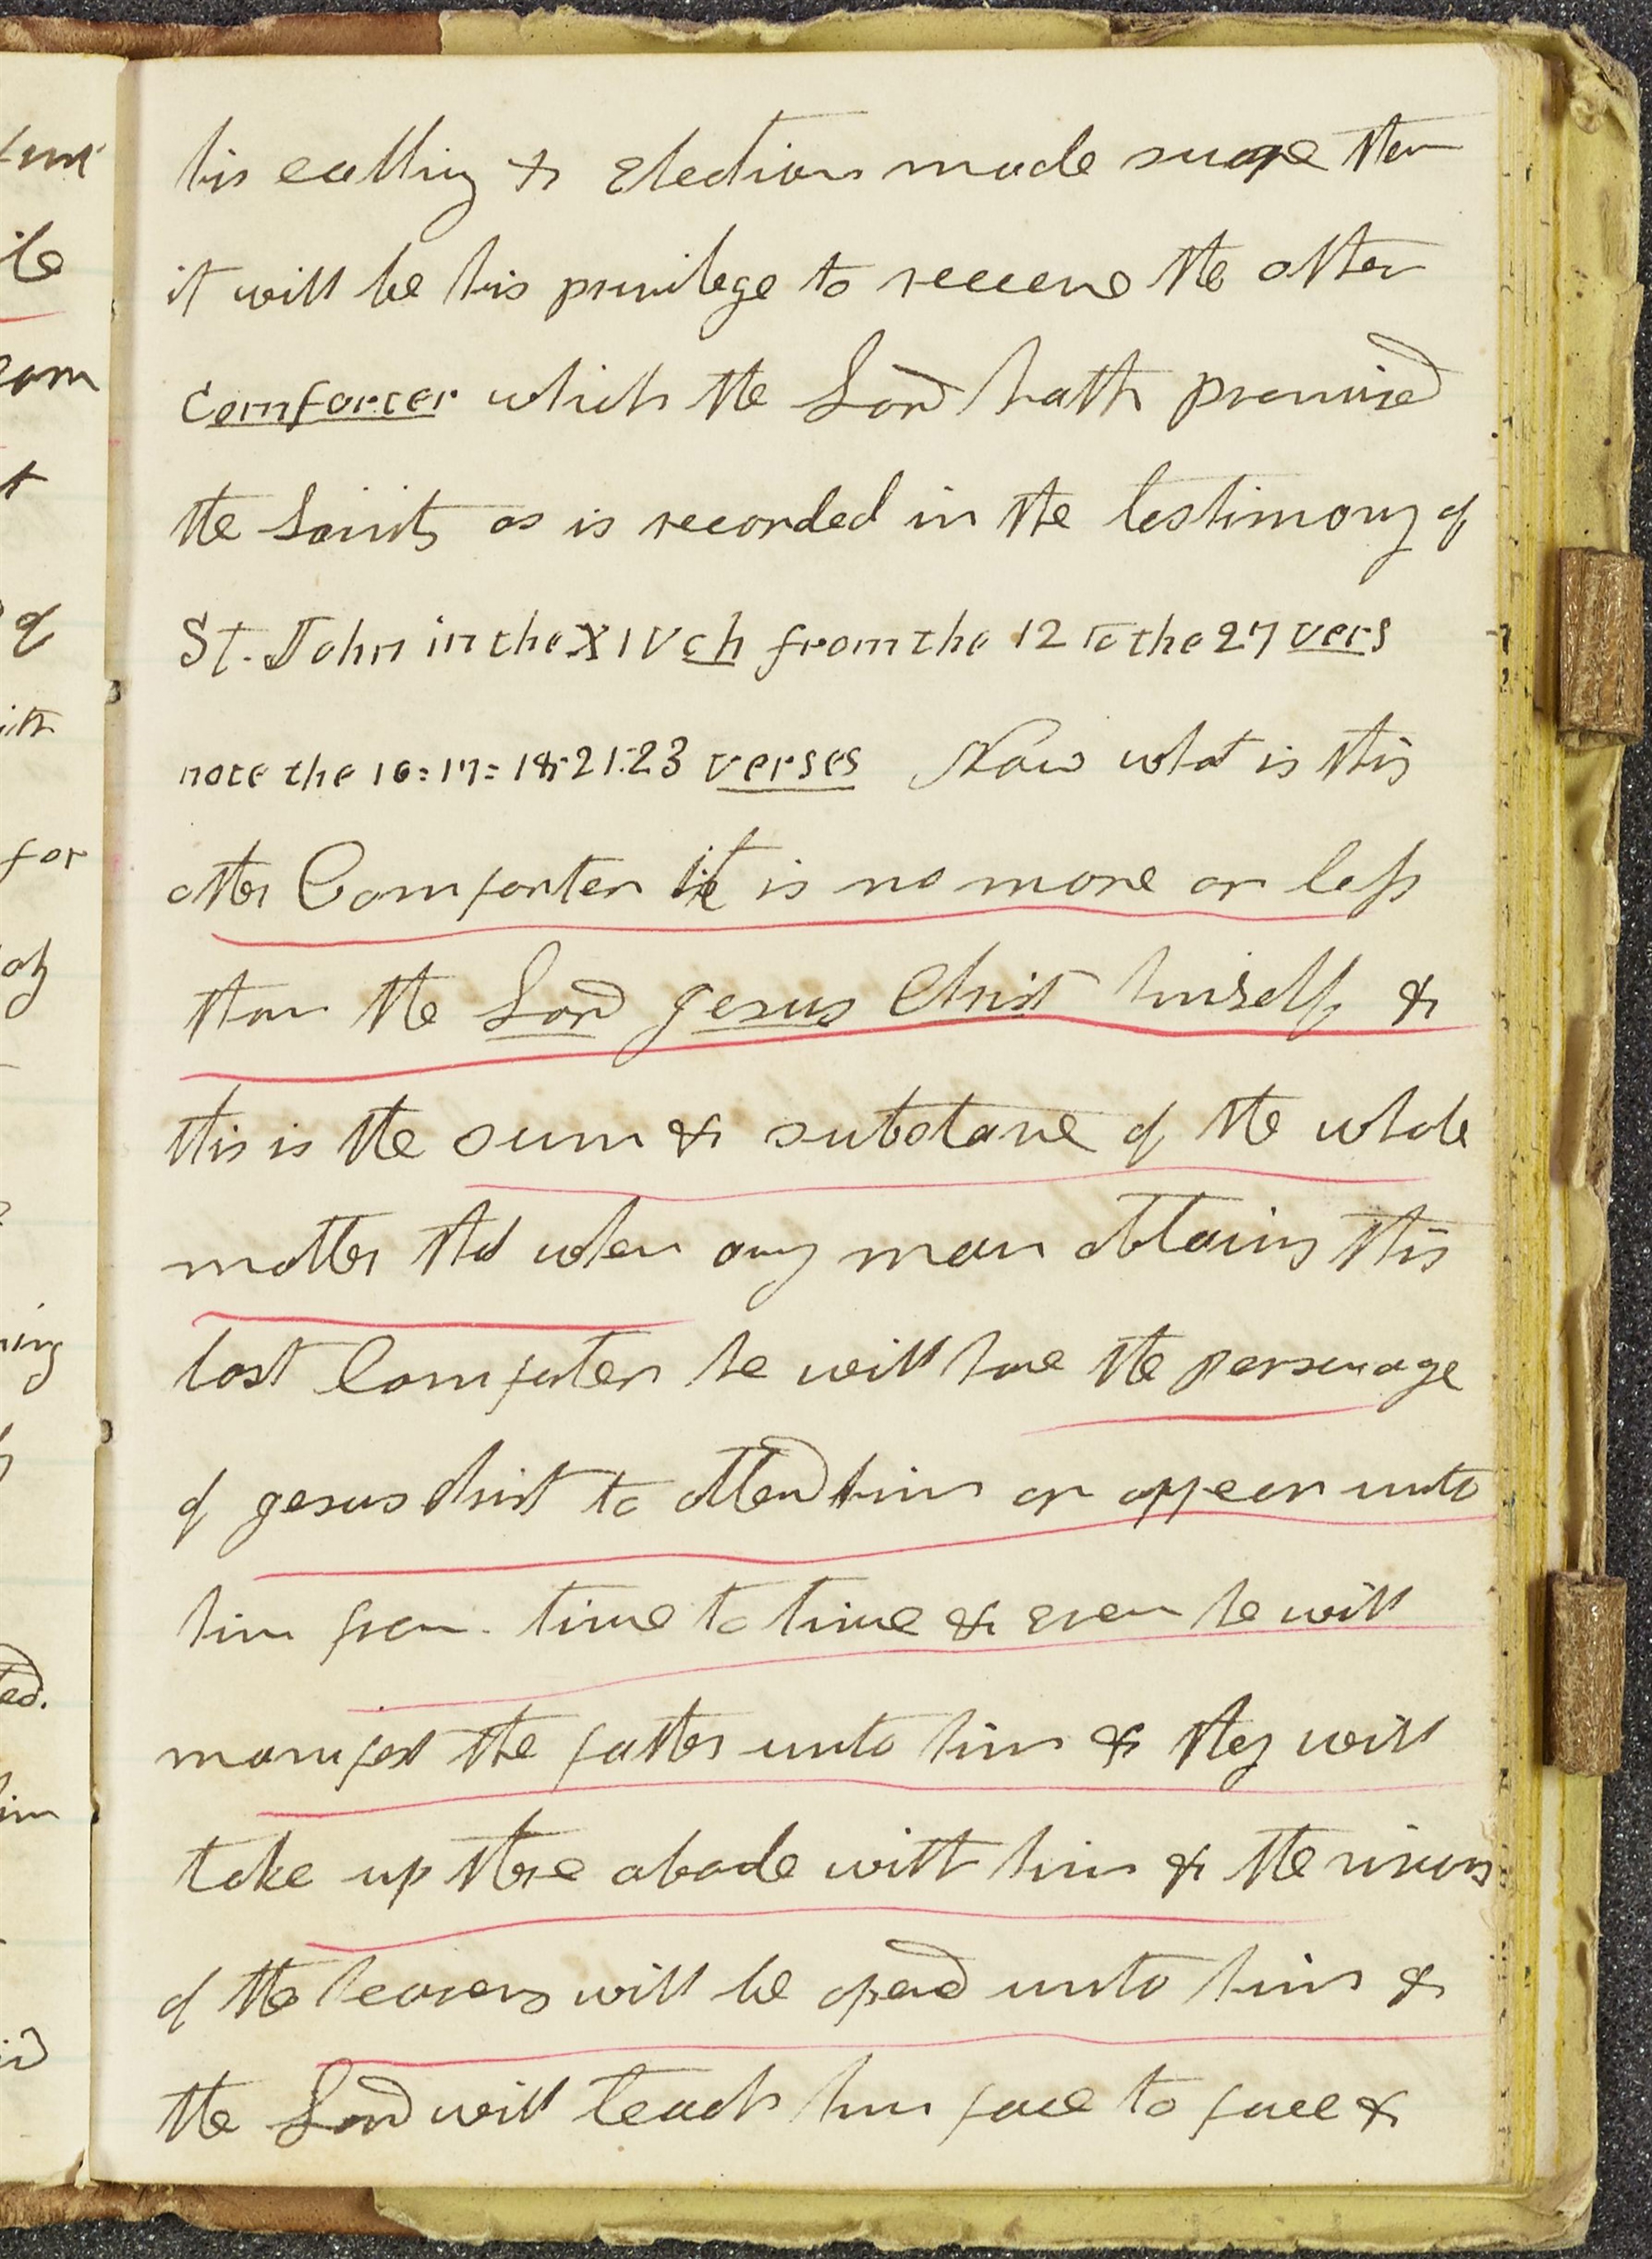 his calling & Election made sure then
it will be his privilege to receive the other
Comforter which the Lord hath promised
the Saints as is recorded in the testimony of
St. John in the XIV ch from the 12 to the 27 vers
note the 16=17=18=21:23 verses Now what is this
other Comforter it is no more or less
than the Lord Jesus Christ himself &
this is the sum & substance of the whole
matter that when any man obtains this
last Comforter he will have the personage
of Jesus Christ to attend him or appear unto
him from time to time & even he will
manifest the father unto him & they will
take up there abode with him & the visions
of the heavens will be opend unto him &
the Lord will teach him face to face &